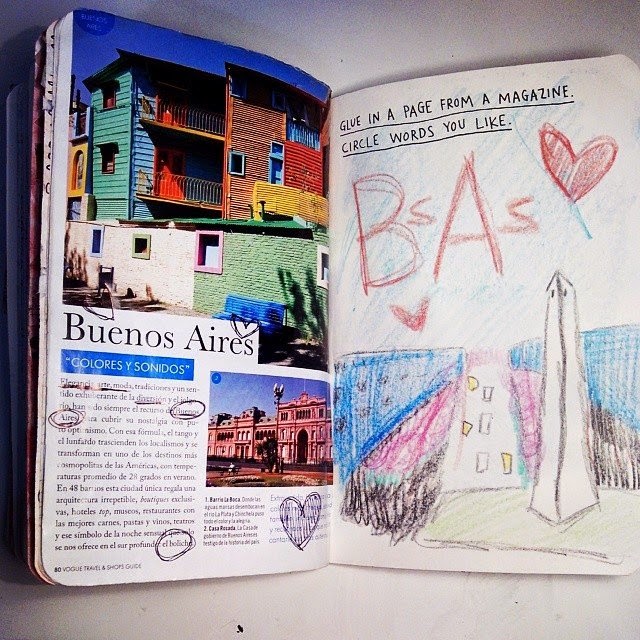 BUENOS
AIRES
Buenos Aires
"COLORES Y SONIDOS"
Elegancia, arte, moda, tradiciones y un sen-
tido exhuberante de la diversión y el
han sido siempre el recurso de Buenos
Aires para cubrir su nostalgia con pu-
ro optimismo. Con esa fórmula, el tango y
el lunfardo trascienden los localismos y se
transforman en uno de los destinos más
cosmopolitas de las Américas, con tempe-
raturas promedio de 28 grados en verano.
En 48 barrios esta ciudad única regala una
arquitectura irrepetible, boutiques exclusi-
vas, hoteles top, museos, restaurantes con
las mejores carnes, pastas y vinos, teatros
y ese símbolo de la noche sensual que sólo
se nos ofrece en el sur profundo: el boliche.
1. Barrio La Boca. Donde las
aguas marsas desembocan en
el río La Plata y Chinchela puso
todo el color y la alegría.
2. Casa Rosada. La Casa de
gobierno de Buenos Aires es
testigo de la historia del país.
80 VOGUE TRAVEL & SHOPS GUIDE
GLUE IN A PAGE FROM A MAGAZINE.
CIRCLE WORDS YOU LIKE.
BsAs